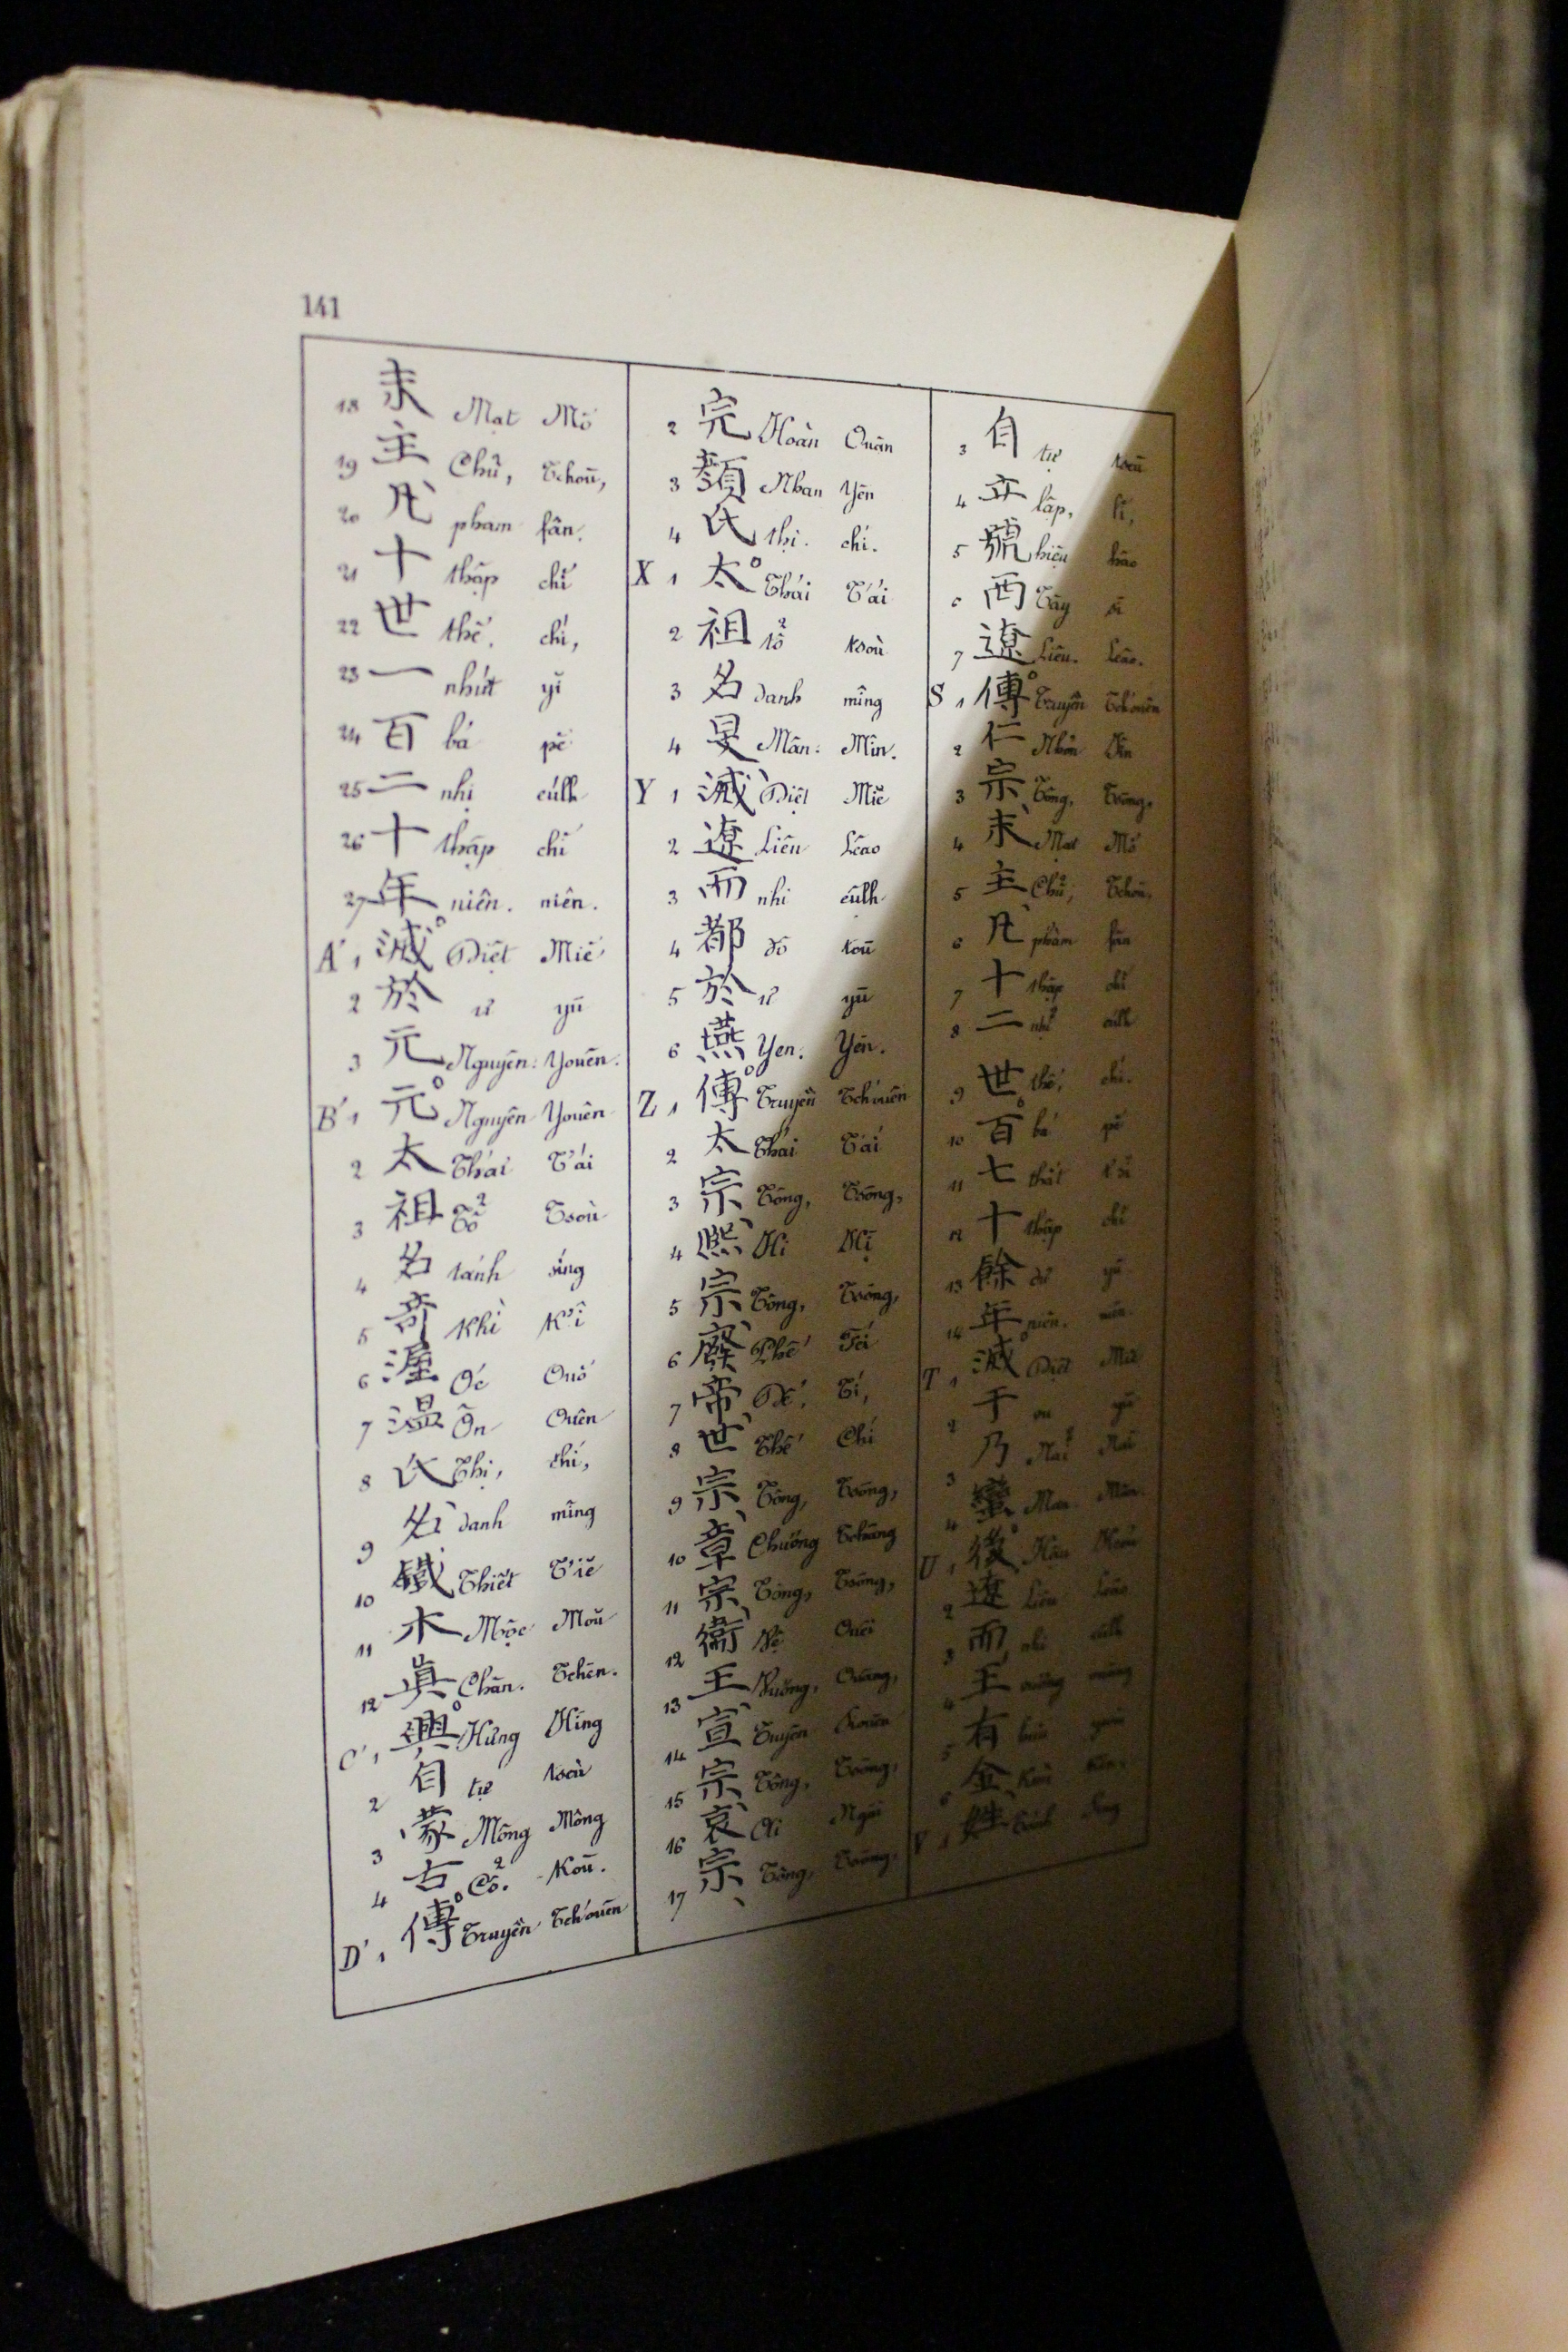 141
18 末 Mạt Mŏ
19 主 Chủ, Tchoū,
20 凡 phàm fân.
21 十 thập chĭ
22 世 thế. chí,
23 一 nhứt yĭ
24 百 bá pĕ
25 二 nhị eúlh
26 十 thập chĭ
27 年 niên. niên.
A' 1 滅 Diệt Miĕ
2 於 ư yū
3 元 Nguyên: Youên.
B' 1 元 Nguyên Youên
2 太 Thái T'ái
3 祖 Tổ Tsoù
4 名 tánh síng
5 奇 Khì K'î
6 渥 Ốc Ouŏ
7 温 Ôn Ouēn
8 氏 Thị, chí,
9 名 danh mîng
10 鐵 Thiết T'iĕ
11 木 Mộc Moŭ
12 眞 Chân. Tchēn.
C' 1 興 Hưng Hīng
2 自 tự tseú
3 蒙 Mông Mông
4 古 Cổ. Koū.
D' 1 傳 Truyền Tch'ouên
2 完 Hoàn Ouân
3 顏 Nhan Yên
4 氏 thị. chí.
X 1 太 Thái T'ái
2 祖 tổ tsoù
3 名 danh mîng
4 旻 Mân: Mîn.
Y 1 滅 Diệt Miĕ
2 遼 Liêu Leâo
3 而 nhi eûlh
4 都 đô toū
5 於 ư yū
6 燕 Yen. Yēn.
Z 1 傳 Truyền Tch'ouên
2 太 Thái T'ái
3 宗 Tông, Tsōng,
4 熙 Hi Hī
5 宗 Tông, Tsōng,
6 廢 Phế Féi
7 帝 Đế, Tí,
8 世 Thế Chí
9 宗 Tông, Tsōng,
10 章 Chương Tchāng
11 宗 Tông, Tsōng,
12 衞 Vệ Ouéi
13 王 Vương, Ouâng,
14 宣 Tuyên
15 宗 Tông, Tsōng,
16 哀 Ai Ngāi
17 宗 Tông, Tsōng.
3 自 tự tseú
4 立 lập, lĭ,
5 號 hiệu háo
6 西 Tây sī
7 遼 Liêu. Leâo.
S 1 傳 Truyền Tch'ouên
2 仁 Nhơn Jîn
3 宗 Tông, Tsōng,
4 末 Mạt Mŏ
5 主 Chủ, Tchoū,
6 凡 phàm fân
7 十 thập chĭ
8 二 nhị eúlh
9 世 thế, chí.
10 百 bá pĕ
11 七 thất
12 十 thập chĭ
13 餘 dư yû
14 年 niên. niên.
T 1 滅 Diệt Miĕ
2 于 yū
3 乃 Nãi
4 蠻 Man Mân
U 1 後 Hậu Heóu
2 遼 Liêu Leâo
3 而 nhi eûlh
4 王 vương ouâng
5 有 hữu
6 金 Kim Kīn.